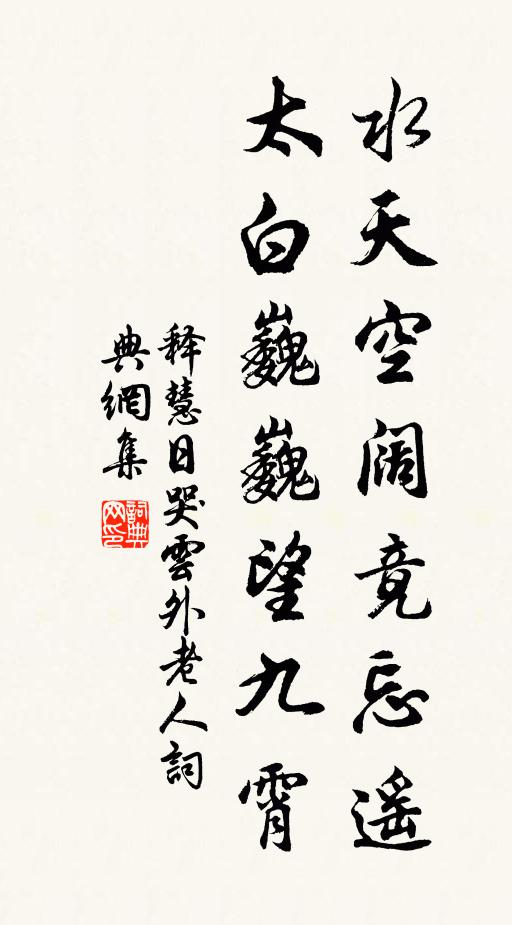 水天空阔竟忘遥
太白巍巍望九霄
释慧日哭雲外老人詞
典網集
詞典
网印